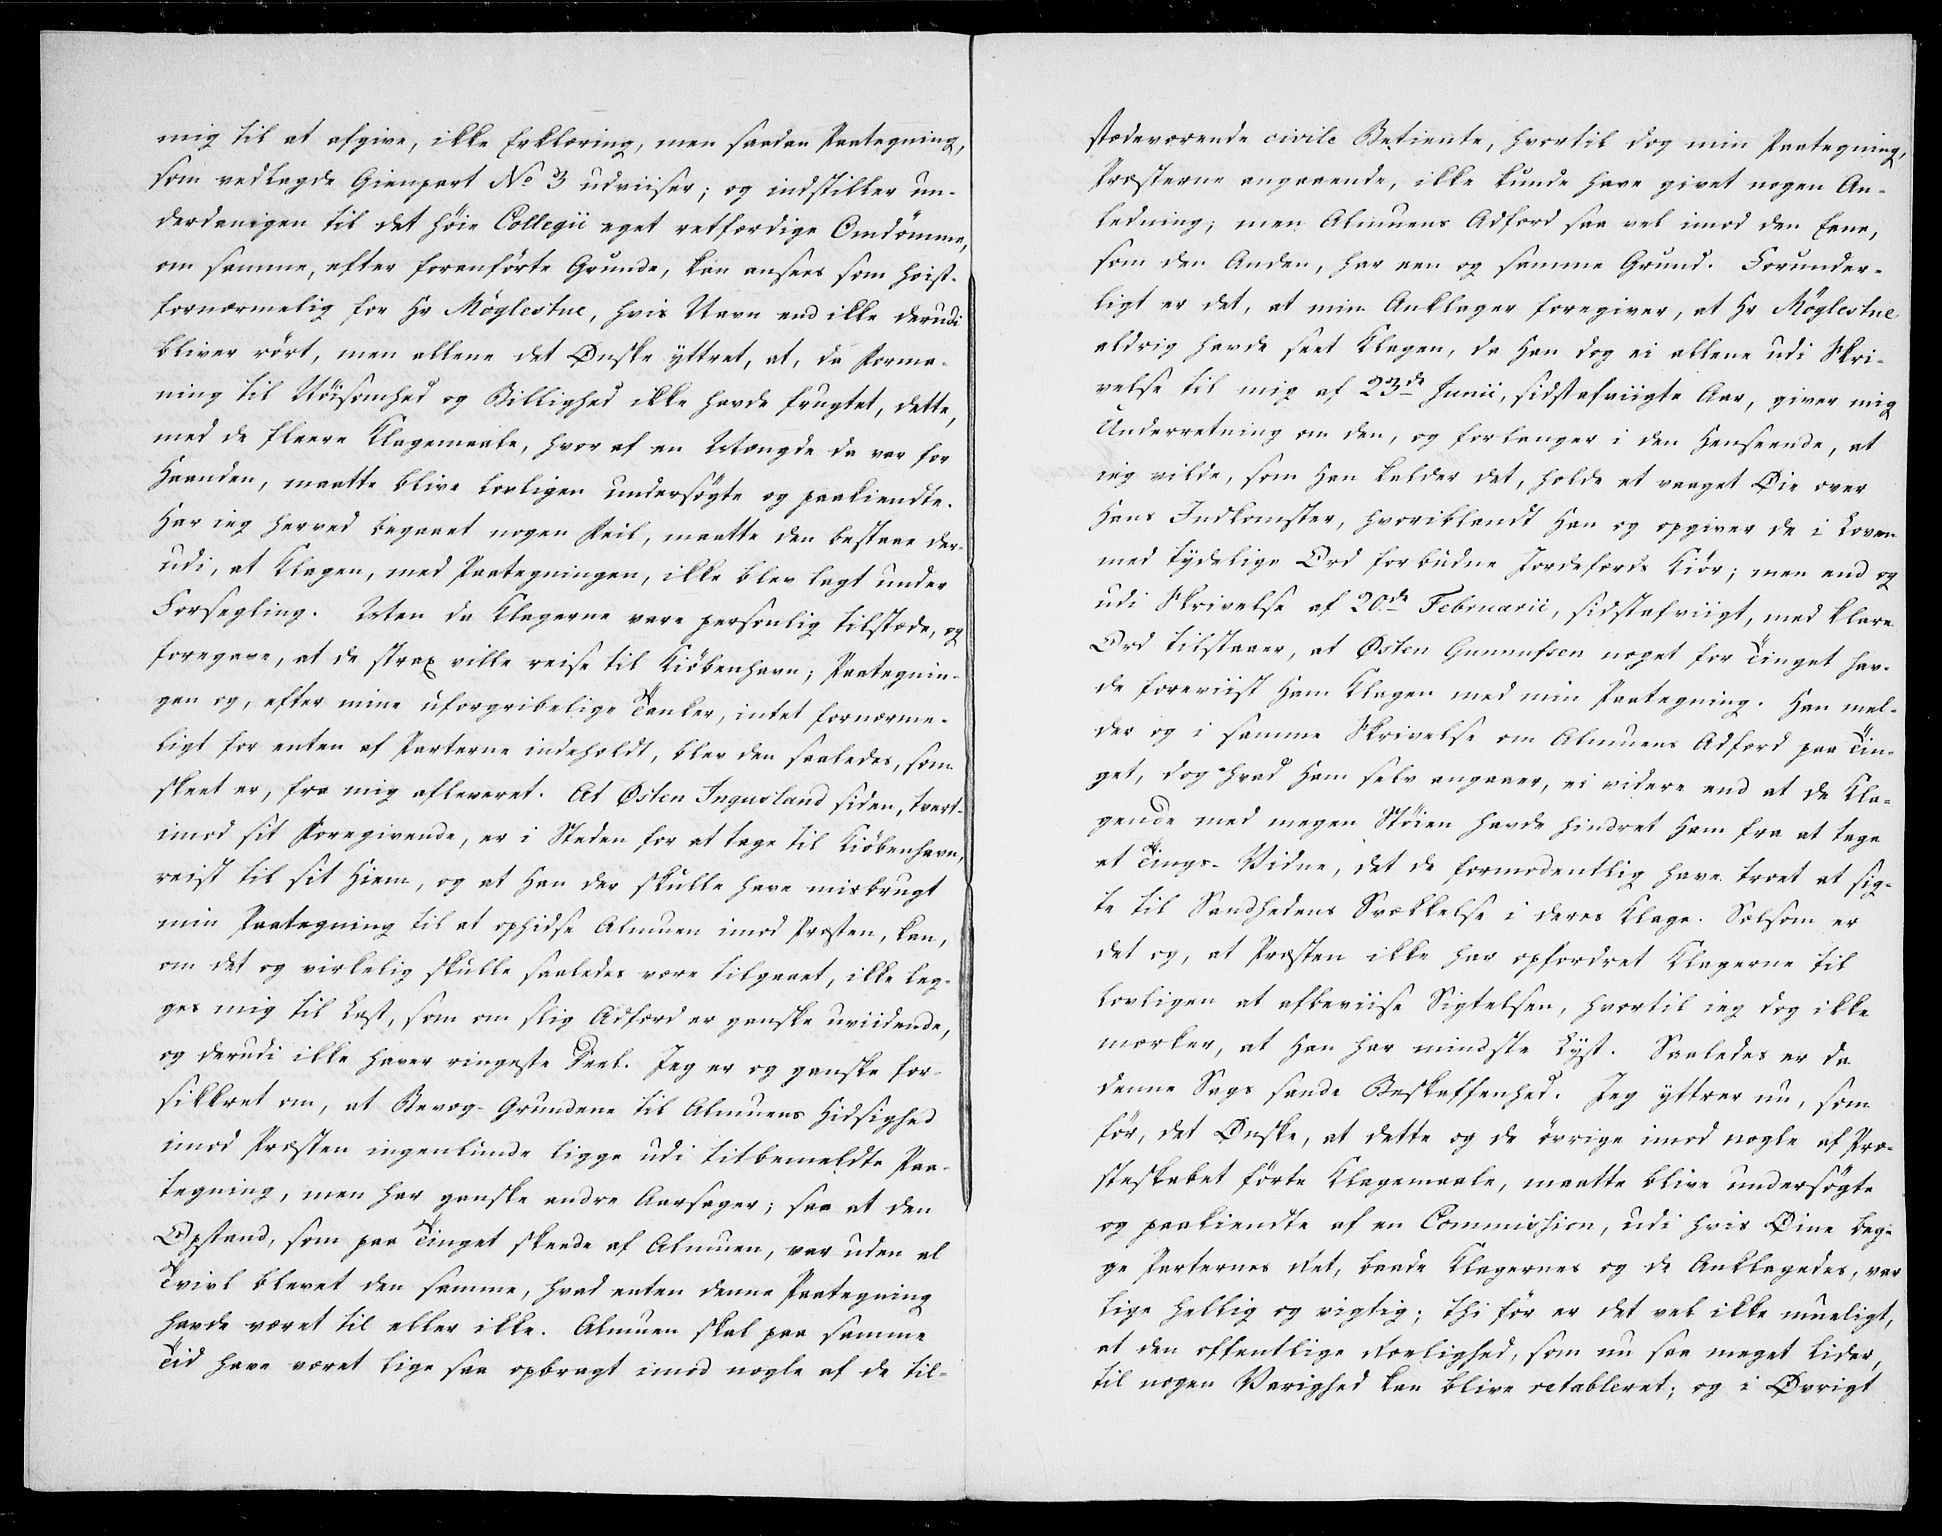 mig til at afgive, ikke Erklæring, men saadan Paategning,
som vedlagde Gienpart No 3 udviiser; og indstiller un-
derdanigen til det høie Collegii eget retfærdige Omdømme,
om samme, efter foranførte Grunde, kan ansees som høist-
fornærmelig for Hr Møglestue, hvis Navn end ikke derudi
bliver rørt, men allene det Ønske yttret, at, da Forma-
ning til Nøisomhed og Billighed ikke havde frugtet, dette,
med de fleere Klagemaale, hvor af en Mængde da var for
Haanden, maatte blive lovligen undersøgte og paakiendte.
Har ieg herved begaaet nogen Feil, maatte den bestaae der-
udi, at Klagen, med Paategningen, ikke blev lagt under
Forsegling. Men da Klagerne vare personlig tilstæde, og
foregave, at de strax ville reise til Kiøbenhavn; Paategnin-
gen og, efter mine uforgribelige Tanker, intet fornærme-
ligt for enten af Parterne indeholdt, blev den saaledes, som
skeet er, fra mig afleveret. At Østen Ingusland siden, tvert-
imod sit Foregivende, er i Steden for at tage til Kiøbenhavn,
reist til sit Hiem, og at Han der skulle have misbrugt
min Paategning til at ophidse Almuen imod Præsten, kan,
om det og virkelig skulle saaledes være tilgaaet, ikke leg-
ges mig til Last, som om slig Adfærd er ganske uviidende,
og derudi ikke haver ringeste Deel. Jeg er og ganske for-
sikkret om, at Bevæg-Grundene til Almuens Hidsighed
imod Præsten ingenlunde ligge udi titbemeldte Paa-
tegning, men har ganske andre Aarsager; saa at den
Opstand, som paa Tinget skeede af Almuen, var uden al
Tvivl blevet den samme, hvad enten denne Paategning
havde været til eller ikke. Almuen skal paa samme
Tid have været lige saa opbragt imod nogle af de til-
stædeværende civile Betiente, hvortil dog min Paategning,
Præsterne angaaende, ikke kunde have givet nogen An-
ledning; men Almuens Adfærd saa vel imod den Eene,
som den Anden, har een og samme Grund. Forunder-
ligt er det, at min Anklager foregiver, at Hr Møglestue
aldrig havde seet Klagen, da Han dog ei allene udi Skri-
velse til mig af 23de Junii, sidstafviigte Aar, giver mig
Underretning om den, og forlanger i den Henseende, at
ieg vilde, som Han kalder det, holde et vaaget Øie over
Hans Indkomster, hvoriblandt Han og opgiver de i Loven
med tydelige Ord forbudne Jordefærds Kiør; men end og
udi Skrivelse af 20de Februarii, sidstafviigt, med klare
Ord tilstaaer, at Østen Gunnufsen noget for Tinget hav-
de foreviist Ham Klagen med min Paategning. Han mel-
der og i samme Skrivelse om Almuens Adfærd paa Tin-
get, dog hvad Ham selv angaaer, ei videre end at de Kla-
gende med megen Støien havde hindret Ham fra at tage
et Tings-Vidne, det de formodentlig have troet at sig-
te til Sandhedens Svækkelse i deres Klage. Sælsom er
det og, at Præsten ikke har opfordret Klagerne til
lovligen at afbeviise Sigtelsen, hvortil ieg dog ikke
mærker, at Han har mindste Lyst. Saaledes er da
denne Sags sande Beskaffenhed. Jeg yttrer nu, som
før, det Ønske, at dette og de øvrige imod nogle af Præ-
steskabet førte Klagemaale, maatte blive undersøgte
og paakiendte af en Commission, udi hvis Øine beg-
ge Parternes Ret, baade Klagernes og de Anklagedes, var
lige hellig og vigtig; thi før er det vel ikke mueligt,
at den offentlige Roelighed, som nu saa meget lider,
til nogen Varighed kan blive retableret; og i Øvrigt